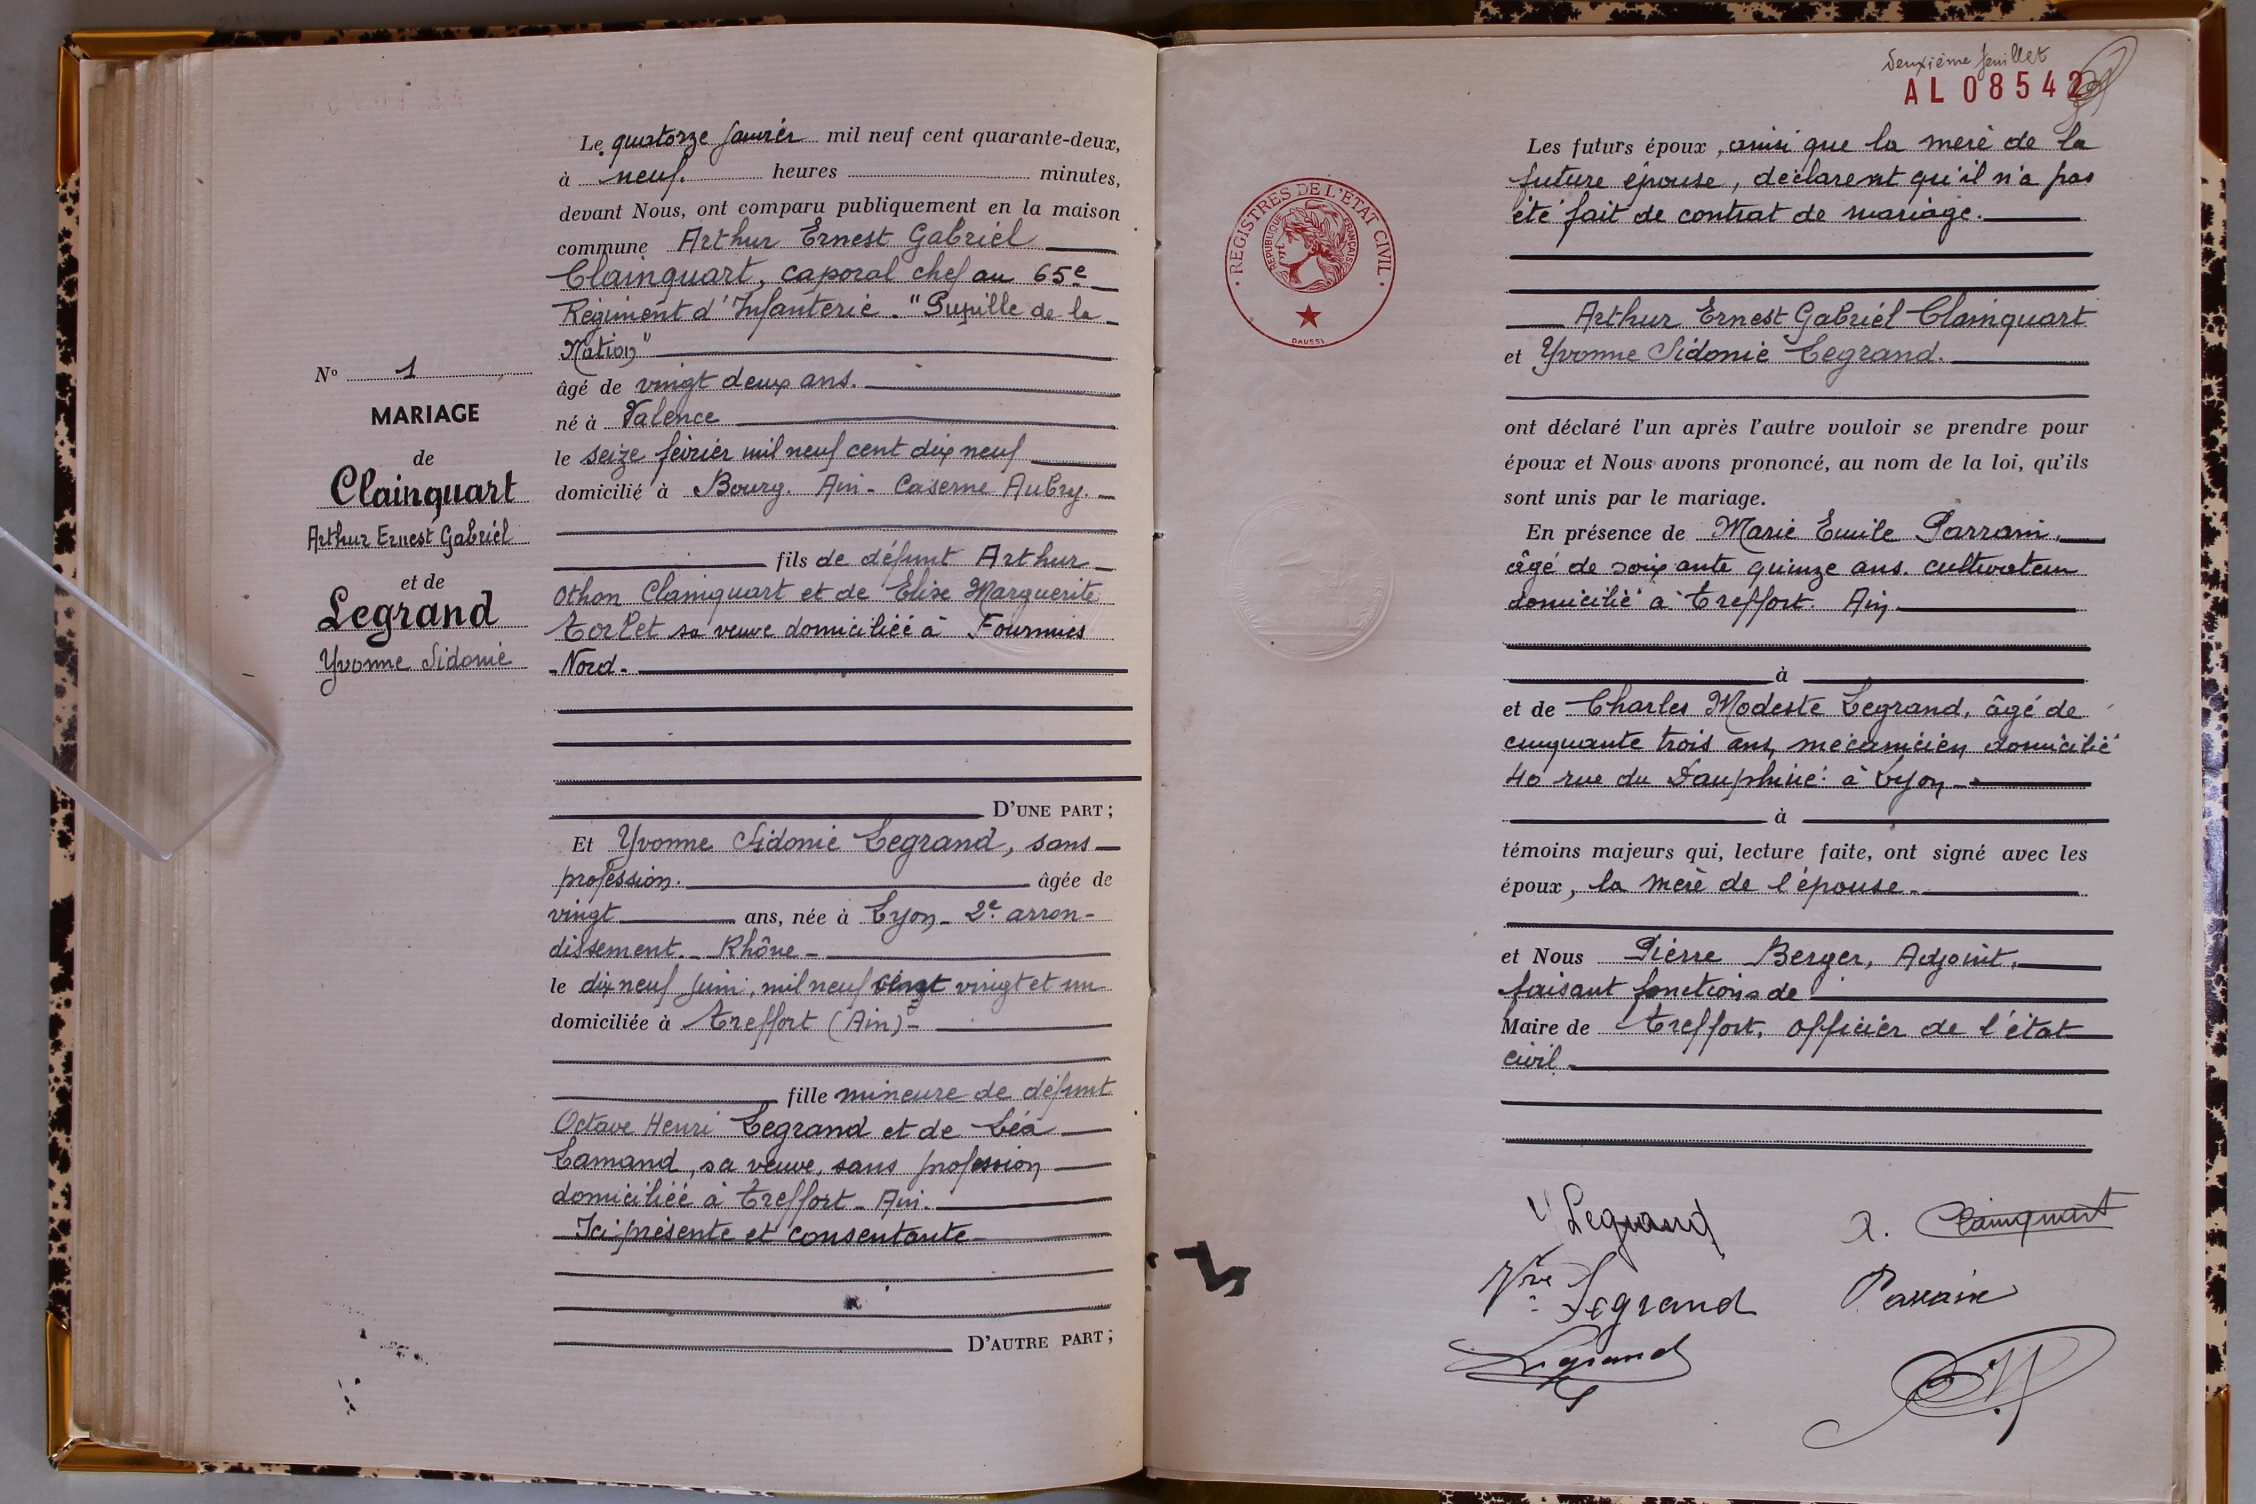 Le quatorze janvier mil neuf cent quarante-deux,
à neuf heures minutes,
devant Nous, ont comparu publiquement en la maison
commune Arthur Ernest Gabriel
Clainquart, caporal chef au 65e
Régiment d'Infanterie. "Pupille de la
Nation"
âgé de vingt deux ans.
né à Valence
le seize février mil neuf cent dix neuf
domicilié à Bourg. Ain - Caserne Aubry.
fils de défunt Arthur
Othon Clainquart et de Elise Marguerite
Torlet sa veuve domiciliée à Fourmies
- Nord -
D'UNE PART ;
Nº 1
MARIAGE
de
Clainquart
Arthur Ernest Gabriel
et de
Legrand
Yvonne Sidonie
Et Yvonne Sidonie Legrand, sans
profession. âgée de
vingt ans, née à Lyon - 2e arron-
dissement. - Rhône -
le dix neuf juin, mil neuf cent vingt et un
domiciliée à Treffort (Ain) -
fille mineure de défunt
Octave Henri Legrand et de Léa
Lamand, sa veuve, sans profession
domiciliée à Treffort - Ain.
Ici présente et consentante
D'AUTRE PART ;
deuxième feuillet
AL 08542
REGISTRES DE L'ETAT CIVIL
REPUBLIQUE FRANÇAISE
DAUSSI
Les futurs époux, ainsi que la mère de la
future épouse, déclarent qu'il n'a pas
été fait de contrat de mariage.
Arthur Ernest Gabriel Clainquart
et Yvonne Sidonie Legrand.
ont déclaré l'un après l'autre vouloir se prendre pour
époux et Nous avons prononcé, au nom de la loi, qu'ils
sont unis par le mariage.
En présence de Marie Emile Parrain,
âgé de soixante quinze ans. cultivateur
domicilié à Treffort. Ain
à
et de Charles Modeste Legrand, âgé de
cinquante trois ans, mécanicien domicilié
40 rue du Dauphiné à Lyon -
à
témoins majeurs qui, lecture faite, ont signé avec les
époux, la mère de l'épouse.
et Nous Pierre Berger, Adjoint,
faisant fonctions de
Maire de Treffort, officier de l'état
civil
Y Legrand A. Clainquart
Vve Legrand Parrain
Legrand